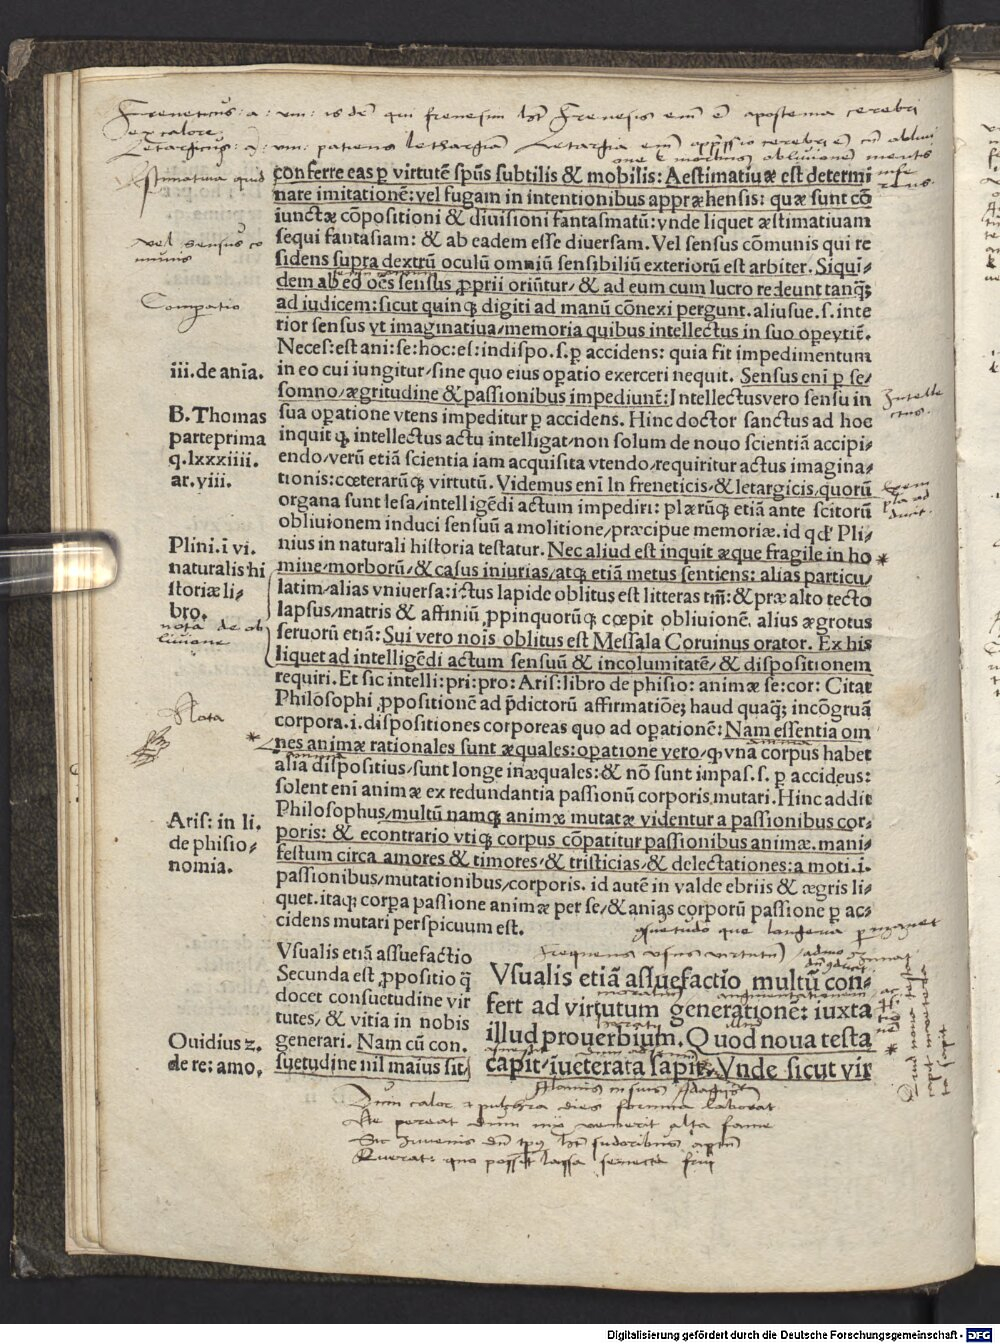 Freneticus: a: um: is dē qui frenesim hēt Frenesis enī ē apostema cerebri
ex calore
Letargicus: a: um: patiens lethargiā Letargia enī
conferre eas p virtutē spūs subtilis & mobilis: Aestimatiuæ est determi
nare imitationē: vel fugam in intentionibus appræhensis: quæ sunt cō
iunctæ cōpositioni & diuisioni fantasmatū: vnde liquet æstimatiuam
sequi fantasiam: & ab eadem esse diuersam. Vel sensus cōmunis qui re
sidens supra dextrū oculū omniū sensibiliū exteriorū est arbiter. Siqui⸗
dem ab eo oēs sensus ꝓprii oriūtur/ & ad eum cum lucro redeunt tanqꝫ
ad iudicem: sicut quinqꝫ digiti ad manū cōnexi pergunt. aliusue. s. inte
rior sensus vt imaginatiua/memoria quibus intellectus in suo opeytiē.
Neces: est ani: se: hoc: es: indispo. s. p accidens: quia fit impedimentum
in eo cui iungitur/sine quo eius opatio exerceri nequit. Sensus eni p se⸗
somno/ægritudine & passionibus impediunt: Intellectusvero sensu in
sua opatione vtens impeditur p accidens. Hinc doctor sanctus ad hoc
inquit ꝙ intellectus actu intelligat/non solum de nouo scientiā accipi⸗
endo/verū etiā scientia iam acquisita vtendo/requiritur actus imagina⸗
tionis: cœterarūqꝫ virtutū. Videmus enī In freneticis/& letargicis/quorū
organa sunt lesa/intelligēdi actum impediri: plærūqꝫ etiā ante scitorū
obliuionem induci sensuū a molitione/præcipue memoriæ. id qd' Pli⸗
nius in naturali historia testatur. Nec aliud est inquit æque fragile in ho
mine/morborū/& casus iniurias/atqꝫ etiā metus sentiens: alias particu⸗
latim/alias vniuersa: ictus lapide oblitus est litteras tm̄: & præ alto tecto
lapsus/matris & affiniū ꝓpinquorūqꝫ cœpit obliuionē. alius ægrotus
seruorū etiā: Sui vero nois oblitus est Messala Coruinus orator. Ex his
liquet ad intelligēdi actum sensuū & incolumitatē/& dispositionem
requiri. Et sic intelli: pri: pro: Aris: libro de phisio: animæ se: cor: Citat
Philosophi ꝓpositionē ad pdictorū affirmatiōe; haud quaqꝫ incōgruā
corpora. i. dispositiones corporeas quo ad opationē: Nam essentia om
nes animæ rationales sunt æquales: opatione vero/ꝙ vna corpus habet
alia dispositius/sunt longe inæquales: & nō sunt impas. s. p accideus:
solent eni animæ ex redundantia passionū corporis mutari. Hinc addit
Philosophus/multū namqꝫ animæ mutatæ videntur a passionibus cor⸗
poris: & econtrario vtiqꝫ corpus cōpatitur passionibus animæ. mani⸗
festum circa amores & timores/& tristicias/& delectationes: a moti. i.
passionibus/mutationibus/corporis. id autē in valde ebriis & ægris li⸗
quet. itaqꝫ corpa passione animæ per se/& aniās corporū passione p ac⸗
cidens mutari perspicuum est.
Æstimatiua quid
vel sensus co
munis
Compatio
iii. de aniā.
B. Thomas
parteprima
q. lxxxiiii.
ar. viii.
Intelle
ctus.
Plini. ī vi.
naturalis hi
storiæ li⸗
bro.
nota de ob
liuione
Nota
Aris: in li.
de phisio⸗
nomia.
Vsualis etiā assuefactio
Secunda est ꝓpositio q̄
docet consuetudine vir
tutes/ & vitia in nobis
generari. Nam cū con.
suetudine nil maius sit/
Ouidius z.
de re: amo,
Frequens usus virtutum
Vsualis etiā assuefactio multū con⸗
fert ad virtutum generationē: iuxta
illud prouerbium. Quod noua testa
capit/iueterata sapit. Vnde sicut vir
Dum calor & pulchra dies formica laborat
Ne pereat dum nix venerit alta fame
Sic Juvenis
Querat: quo possit lassa senecta frui
Digitalisierung gefördert durch die Deutsche Forschungsgemeinschaft - DFG